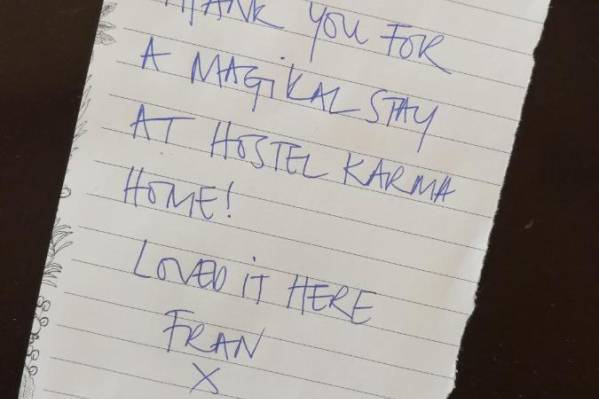 THANK YOU FOR
A MAGiKAL STAY
AT HOSTEL KARMA
HOME!
LOVED iT HERE
FRAN
X